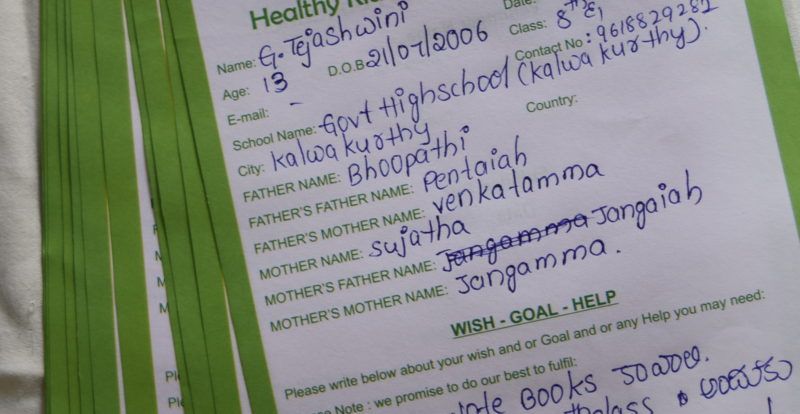 Healthy
Date:
Name: G. Tejashwini
Class: 8th E1
Age: 13
D.O.B 21/07/2006
Contact No: 9618829282
E-mail: -
School Name: Govt Highschool (kalwa kurthy).
City: kalwa kurthy
Country:
FATHER NAME: Bhoopathi
FATHER'S FATHER NAME: Pentaiah
FATHER'S MOTHER NAME: venkatamma
MOTHER NAME: sujatha
MOTHER'S FATHER NAME: Jangamma Jangaiah
MOTHER'S MOTHER NAME: Jangamma.
WISH - GOAL - HELP
Please write below about your wish and or Goal and or any Help you may need:
Note : we promise to do our best to fulfil:
Books కావాలి.
అందుకు